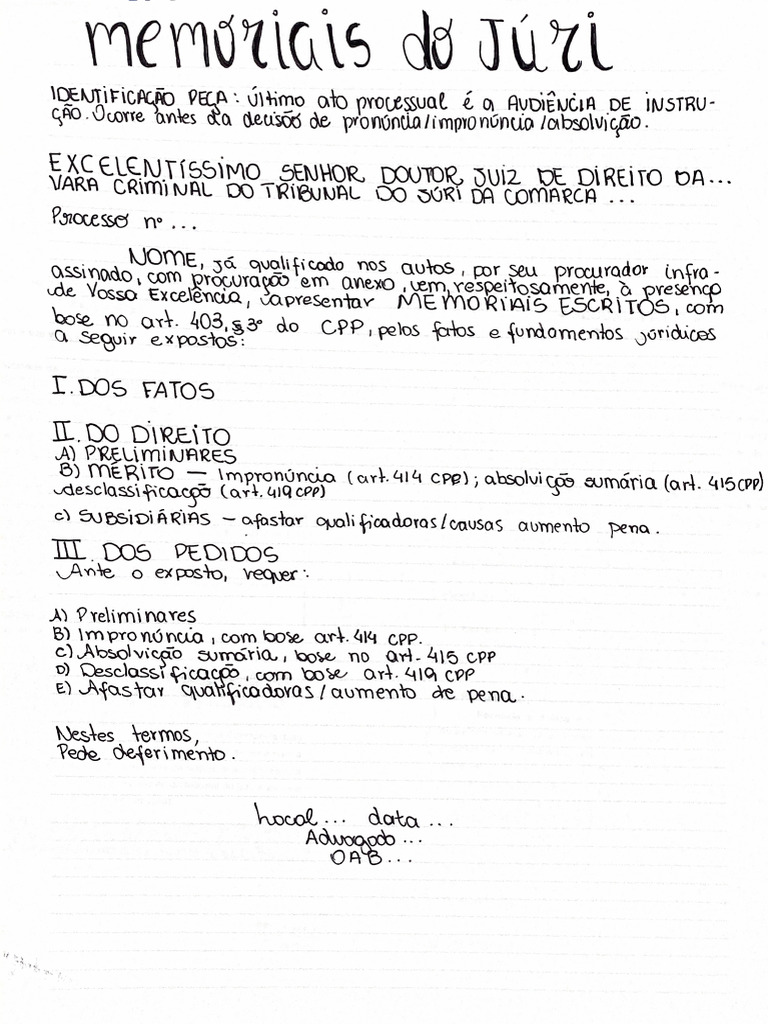 memoriais do Júri
IDENTIFICAÇÃO PEÇA: último ato processual é a AUDIÊNCIA DE INSTRU-
ÇÃO. Ocorre antes da decisão de pronúncia/impronúncia/absolvição.
EXCELENTÍSSIMO SENHOR DOUTOR JUIZ DE DIREITO DA...
VARA CRIMINAL DO TRIBUNAL DO JÚRI DA COMARCA ...
Processo nº ...
NOME, já qualificado nos autos, por seu procurador infra-
assinado, com procuração em anexo, vem, respeitosamente, à presença
de Vossa Excelência, apresentar MEMORIAIS ESCRITOS, com
base no art. 403, § 3º do CPP, pelos fatos e fundamentos jurídicos
a seguir expostos:
I. DOS FATOS
II. DO DIREITO
A) PRELIMINARES
B) MÉRITO — Impronúncia (art. 414 CPP); absolvição sumária (art. 415 CPP)
desclassificação (art. 419 CPP)
C) SUBSIDIÁRIAS – afastar qualificadoras/causas aumento pena.
III. DOS PEDIDOS
Ante o exposto, requer:
A) Preliminares
B) Impronúncia, com base art. 414 CPP.
C) Absolvição sumária, base no art. 415 CPP
D) Desclassificação, com base art. 419 CPP
E) Afastar qualificadoras/aumento de pena.
Nestes termos,
Pede deferimento.
Local... data ...
Advogado ...
OAB...